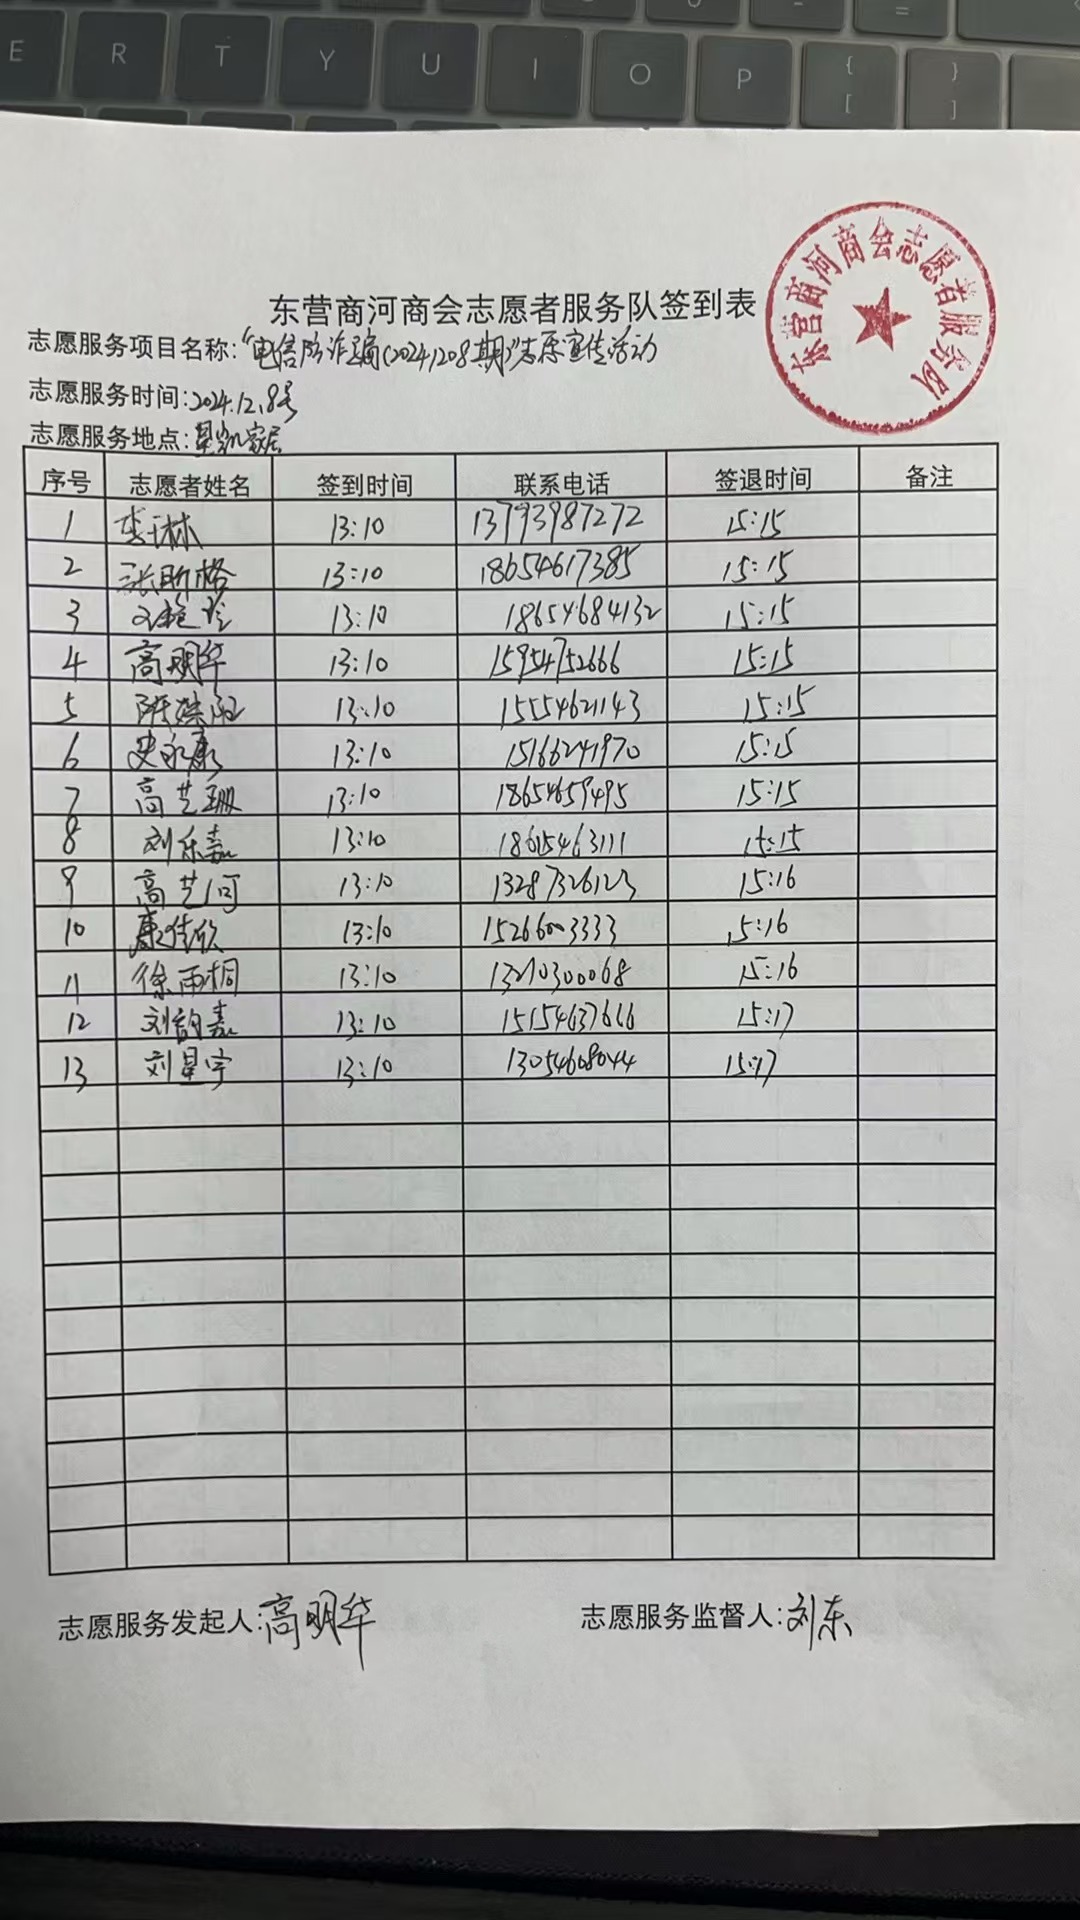 E R T Y U I O P { [ } ]
东营商河商会志愿者服务队
东营商河商会志愿者服务队签到表
志愿服务项目名称:“电信防诈骗(20241208期)”志愿宣传活动
志愿服务时间:2024.12.8号
志愿服务地点:星凯家居
序号 志愿者姓名 签到时间 联系电话 签退时间 备注
1 李琳 13:10 13793987272 15:15
2 张昕格 13:10 18654617385 15:15
3 13:10 18654684132 15:15
4 高明华 13:10 15954752666 15:15
5 13:10 15554621143 15:15
6 史永康 13:10 15166241970 15:15
7 高艺珊 13:10 18654659495 15:15
8 刘乐嘉 13:10 15:15
9 高艺河 13:10 13287326123 15:16
10 康佳欣 13:10 15266003333 15:16
11 徐雨桐 13:10 13210300068 15:16
12 刘韵嘉 13:10 15154637666 15:17
13 刘星宇 13:10 13054608044 15:17
志愿服务发起人:高明华 志愿服务监督人:刘东